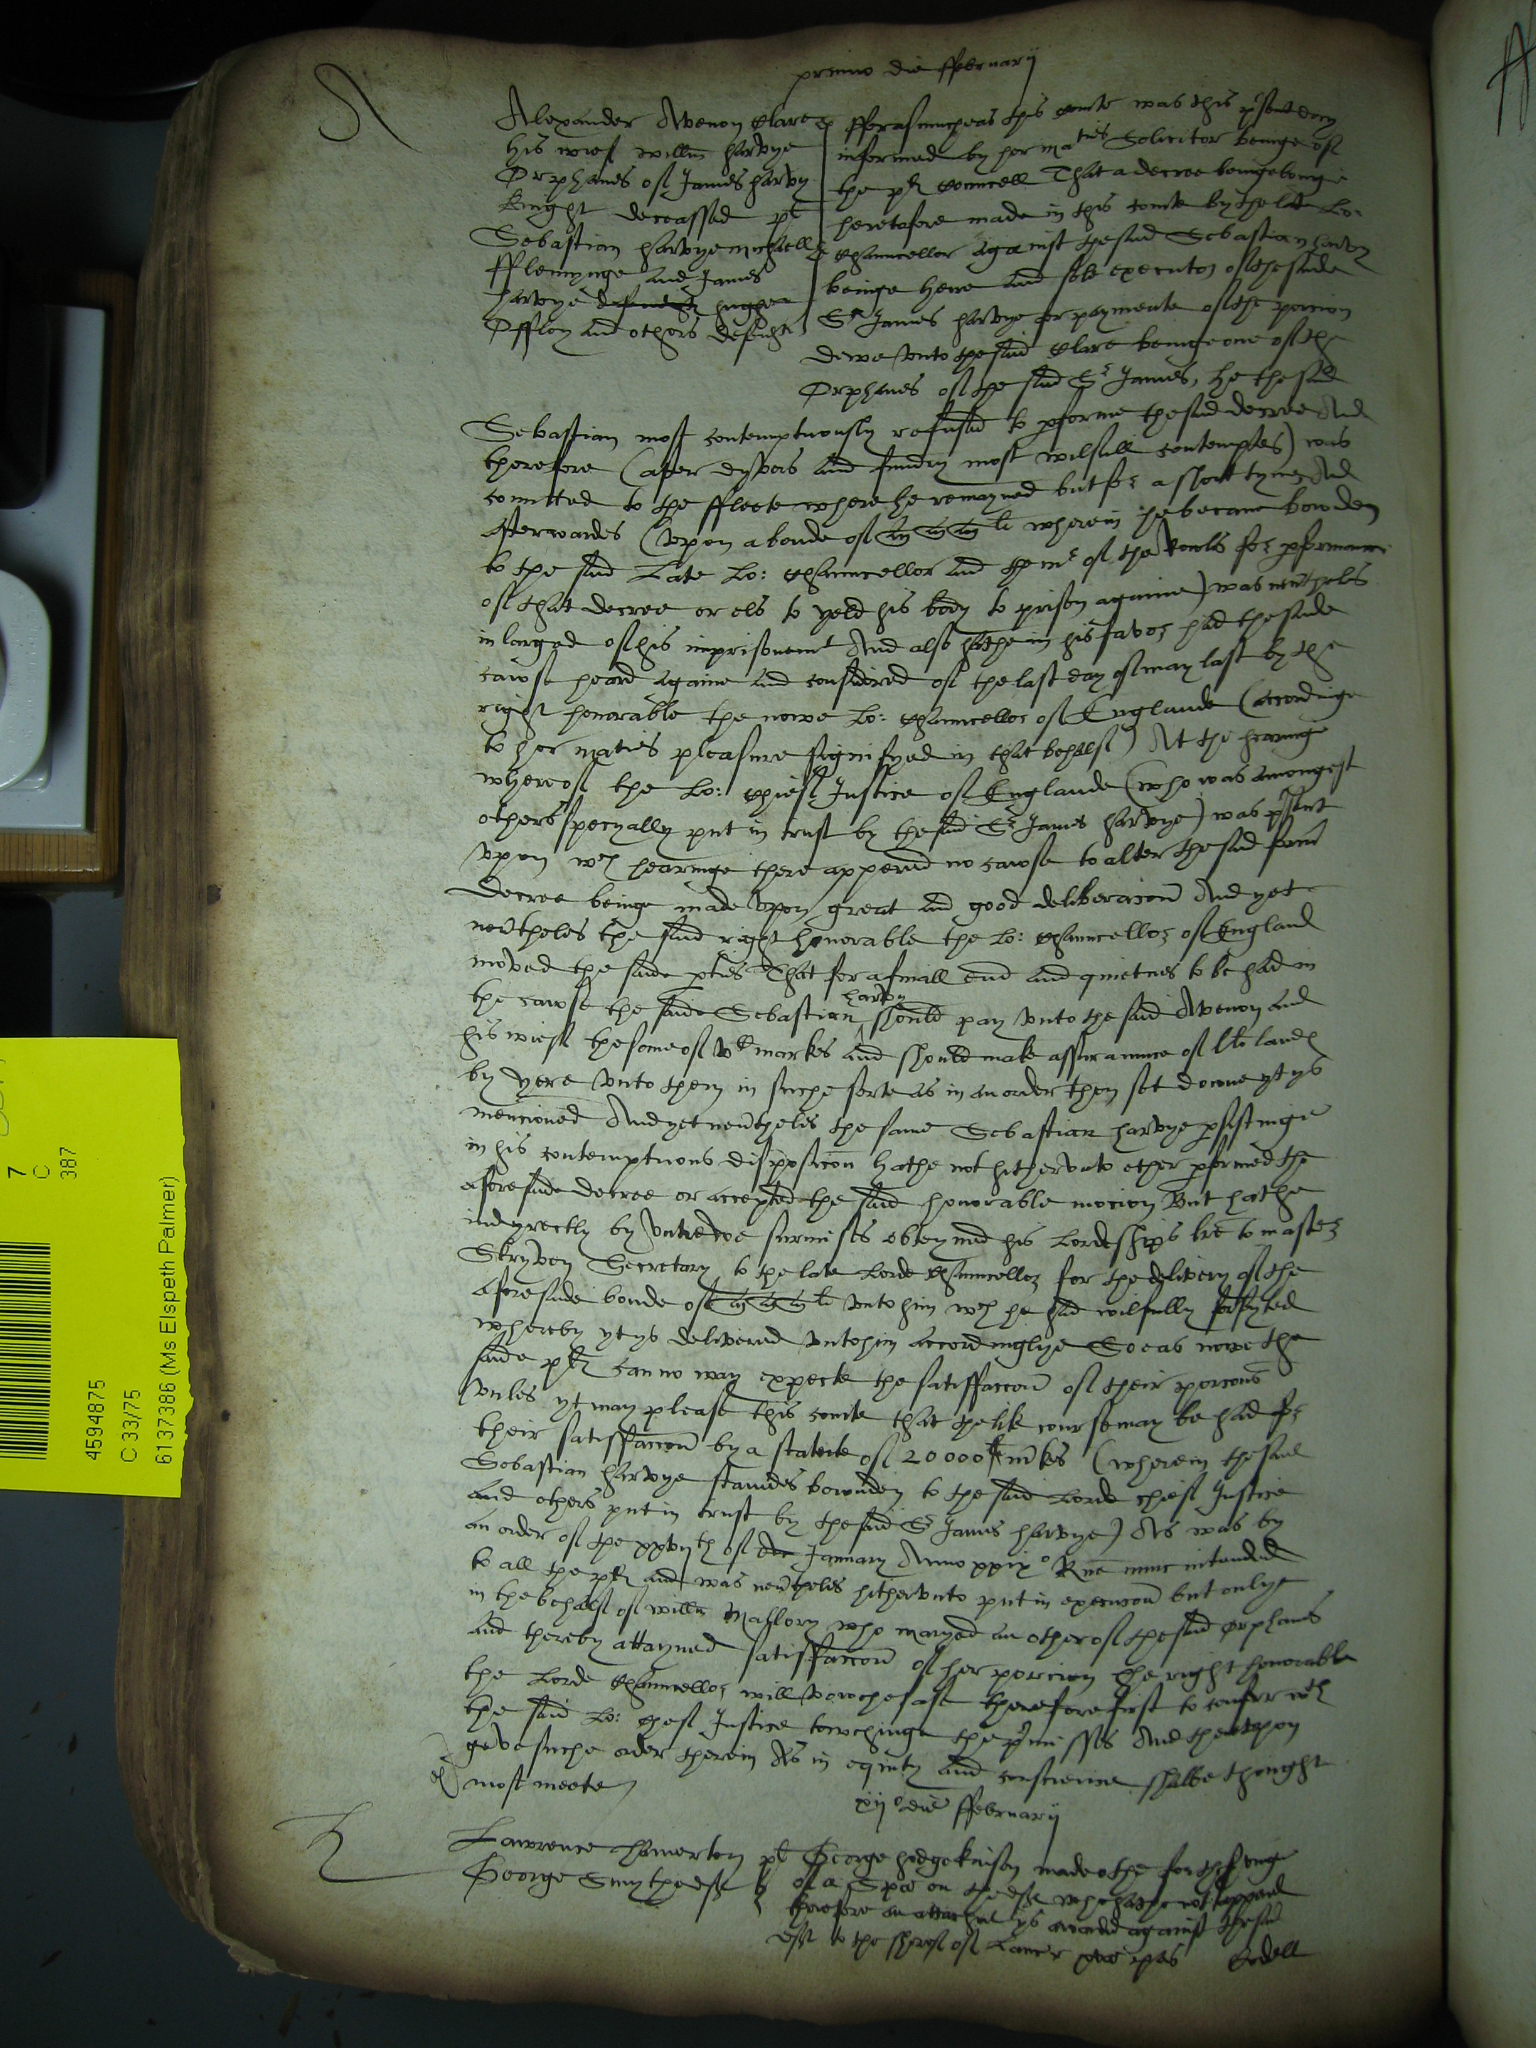 A
primo die ffebruarij
Alexander Avenon Clare
his wief willm harvye
Orphanes of James harvy
knight deceassed plt
Sebastian harvye michaell
fflemynge and James
harvye defendts hughe
Offley and others defendts
fforasmucheas this courte was this p'sent day
informed by her maties Solicitor beinge of
the plt councell That a decree beinge
heretofore made in this courte by the late Lo:
Chauncellor against the said Sebastian harvy
beinge heire and sole executor of the saide
Sr James harvye for paymente of the porcion
dewe unto the said Clare beinge one of the
Orphanes of the said Sr James, he the said
Sebastian most contemptuously refused to p'forme the said decree And
therefore (after dyvers and sundry most wilfull contemptes) was
comitted to the ffleete where he remayned but for a short tyme And
afterwardes (upon a bonde of li wherein he became bounden
to the said Late Lo: Chauncellor and the mr of the Roules for p'formaunce
of that decree or els to yeld his body to prison againe) was nevtheles
inlarged of his imprisonemt And also hathe in his favor had the saide
cawse heard againe and considered of the last day of may last by the
right honorable the nowe Lo: Chauncellor of Englande (accordinge
to her maties pleasure signifyed in that behalf) At the hearinge
whereof the Lo: chief Justice of Englande (who was amongest
others specyally put in trust by the said Sr James harvye) was p'sent
upon wch hearinge there appered no cawse to alter the said form
decree beinge made upon great and good deliberacion And yet
nevtheles the said right honorable the Lo: Chauncellor of England
moved the saide p'ties That for a finall end and quietnes to be had in
the cawse the saide Sebastian harvy should pay unto the said Avenon and
his wief the some of vc markes And should make assuraunce of lli landes
by yere unto them in suche sorte as in an order then set downe yt ys
mencioned And yet nevtheles the same Sebastian harvye p'sistinge
in his contemptuous disposicon hathe not hitherunto ether p'formed the
aforesaide decree or accepted the said honorable mocion But hathe
indyrectly by untrewe surmises obteyned his Lordeships lre to master
Skryven Secretary to the late Lorde Chauncellor for the delivery of the
aforesaide bonde of li unto him wch he had wilfully forfeyted
whereby yt ys delivered unto him accordinglye So as nowe the
saide plts can no way expecte the satisfaccon of their porcons
unles yt may please this courte that the like course may be had for
their satisfaccon by a statute of 20000 mkes (wherein the said
Sebastian harvye standes bounden to the said Lorde chief Justice
and others put in trust by the said Sr James harvye) As was by
an order of the xxvijth of January Anno xxixo Rne nunc intended
to all the plts and was nevtheles hitherunto put in execucon but onlye
in the behalf of willm Mallory who maryed an other of the said Orphanes
and thereby attayned satisfaccon of her porcion The right honorable
the Lorde Chauncellor will vowchesafe therefore first to conferr wth
the said Lo: chief Justice towchinge the p'misses And thereupon
geve suche order therein As in equity and conscience shalbe thought
most meete
xijo die ffebruarij
Lawrence hamerton plt
George Smythe deft
George hodgekinson made othe for the servinge
of a Spa on the deft who hathe not appered
therefore an attachmt ys awarded against the said
deft to the shref of Lancr
4594875
C 33/75
6137386 (Ms Elspeth Palmer)
7
C
387